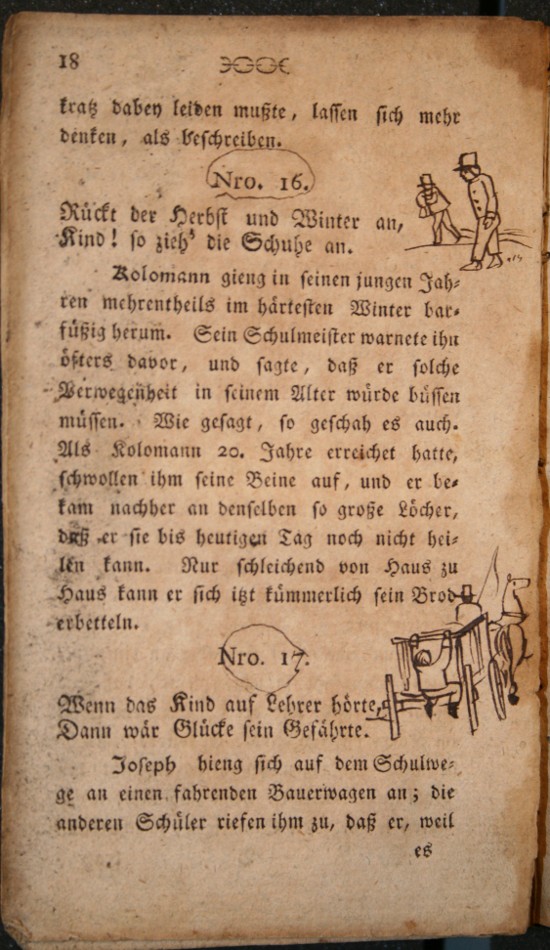 18
kratz dabey leiden mußte, lassen sich mehr
denken, als beschreiben.
Nro. 16.
Rückt der Herbst und Winter an,
Kind! so zieh' die Schuhe an.
Kolomann gieng in seinen jungen Jah-
ren mehrentheils im härtesten Winter bar-
füßig herum. Sein Schulmeister warnete ihn
öfters davor, und sagte, daß er solche
Verwegenheit in seinem Alter würde büssen
müssen. Wie gesagt, so geschah es auch.
Als Kolomann 20. Jahre erreichet hatte,
schwollen ihm seine Beine auf, und er be-
kam nachher an denselben so große Löcher,
daß er sie bis heutigen Tag noch nicht hei-
len kann. Nur schleichend von Haus zu
Haus kann er sich itzt kümmerlich sein Brod
erbetteln.
Nro. 17.
Wenn das Kind auf Lehrer hörte,
Dann wär Glücke sein Gefährte.
Joseph hieng sich auf dem Schulwe-
ge an einen fahrenden Bauerwagen an; die
anderen Schüler riefen ihm zu, daß er, weil
es